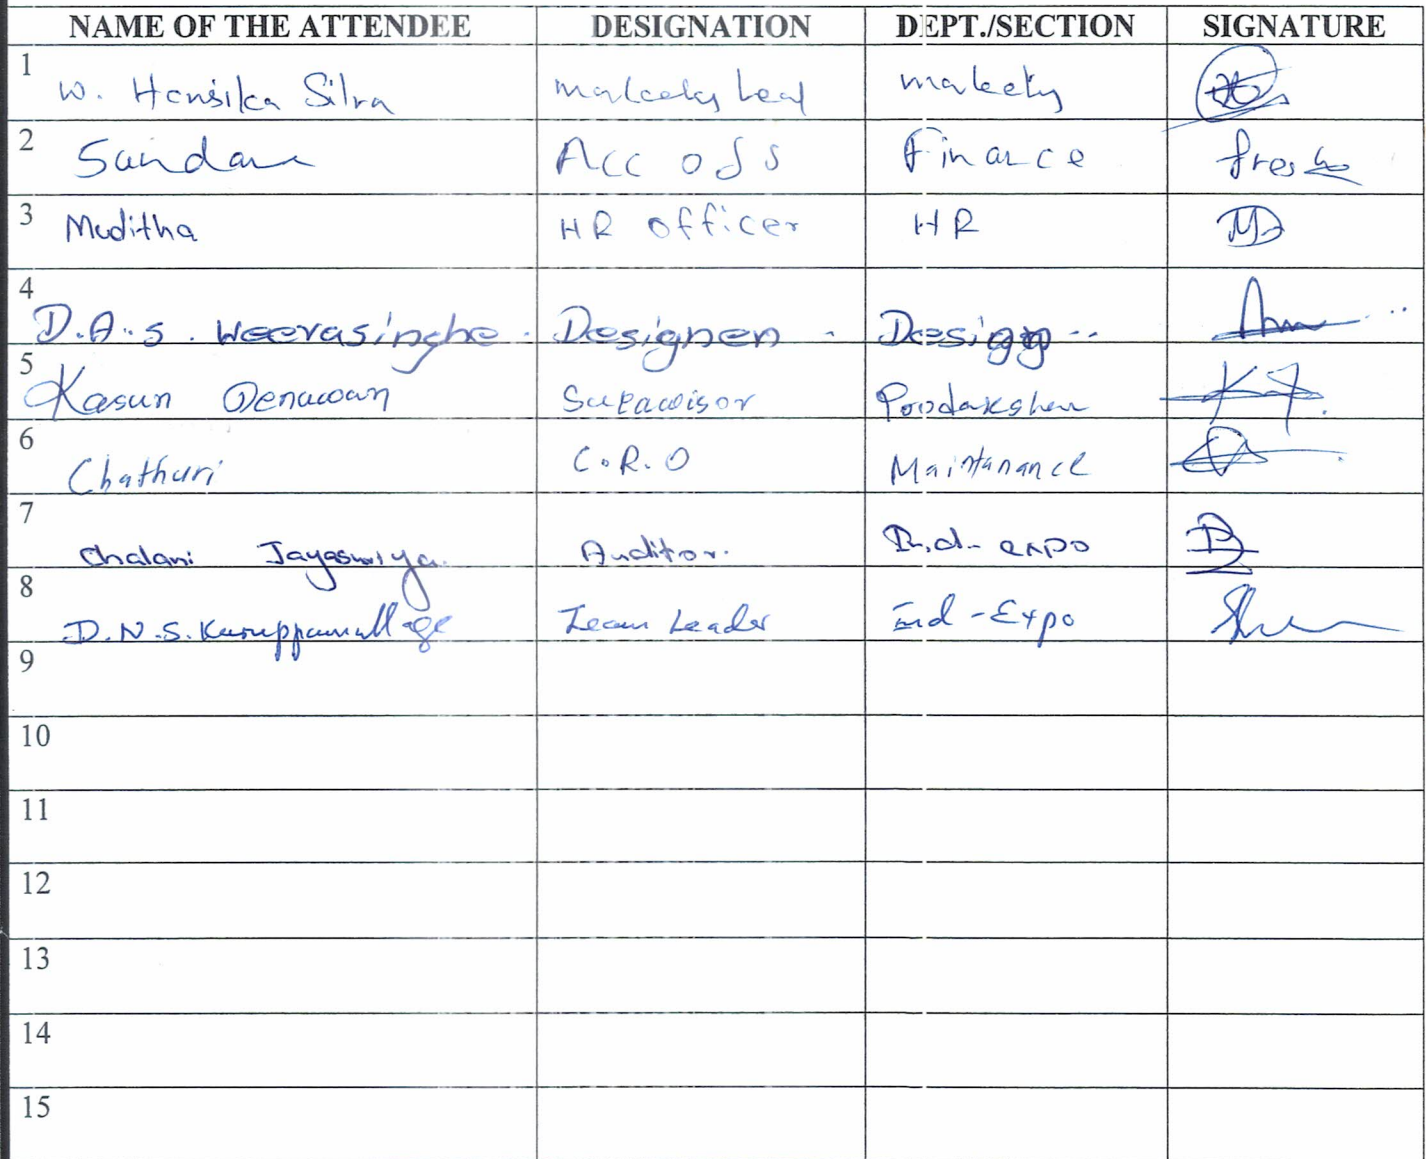 NAME OF THE ATTENDEE DESIGNATION DEPT./SECTION SIGNATURE
1 W. Hansika Silva
2 Sandan Acc Finance
3 Muditha HR officer HR
4 D.A.S. Weerasinghe Designer Design
5 Kasun Supawisor Poodakshen
6 Chathuri C.R.O Maintanance
7 Chalani Jayasuriya Auditor. Ind- expo
8 D.N.S. Kuruppumullage Team Leader Ind-Expo
9
10
11
12
13
14
15